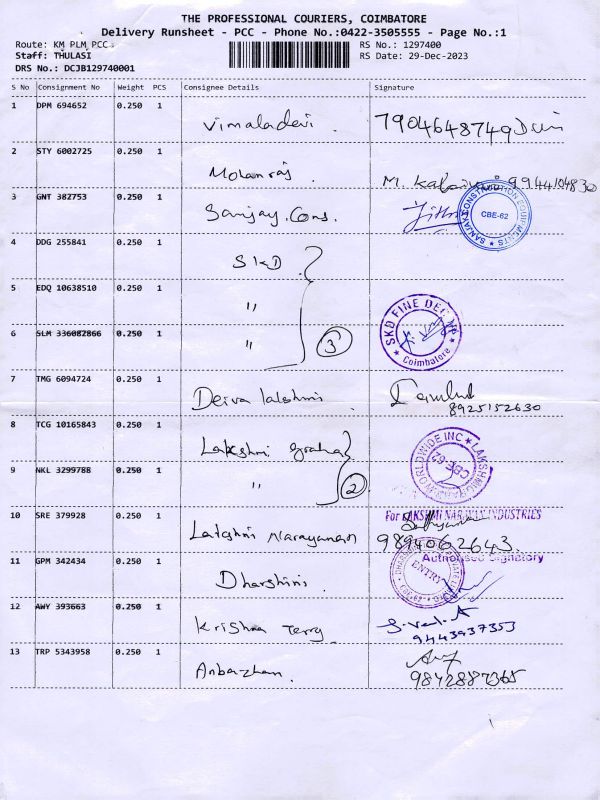 THE PROFESSIONAL COURIERS, COIMBATORE
Delivery Runsheet - PCC - Phone No.:0422-3505555 - Page No.:1
Route: KM PLM PCC RS No.: 1297400
Staff: THULASI RS Date: 29-Dec-2023
DRS No.: DCJB129740001
S No Consignment No Weight PCS Consignee Details Signature
1 DPM 694652 0.250 1 Vimaladevi. 7904648749
2 STY 6002725 0.250 1 Mohanraj. M. 9944104830
3 GNT 382753 0.250 1 Sanjay. Cons. SANJAY CONSTRUCTION EQUIPMENTS CBE-62
4 DDG 255841 0.250 1 SKD
5 EDQ 10638510 0.250 1 "
6 SLM 336082866 0.250 1 " 3 SKD FINE Coimbatore
7 TMG 6094724 0.250 1 Deiva lakshmi. 8925152630
8 TCG 10165843 0.250 1 Lakshmi WORLDWIDE INC CBE-62
9 NKL 3299788 0.250 1 " 2
10 SRE 379928 0.250 1 Lakshmi Narayanan For LAKSHMI NARAYAN INDUSTRIES 9894062643.
Authorised Signatory
11 GPM 342434 0.250 1 Dharshini. ENTRY
12 AWY 393663 0.250 1 Krishna Terry. 9443937353
13 TRP 5343958 0.250 1 Anbazhan. 9842887365